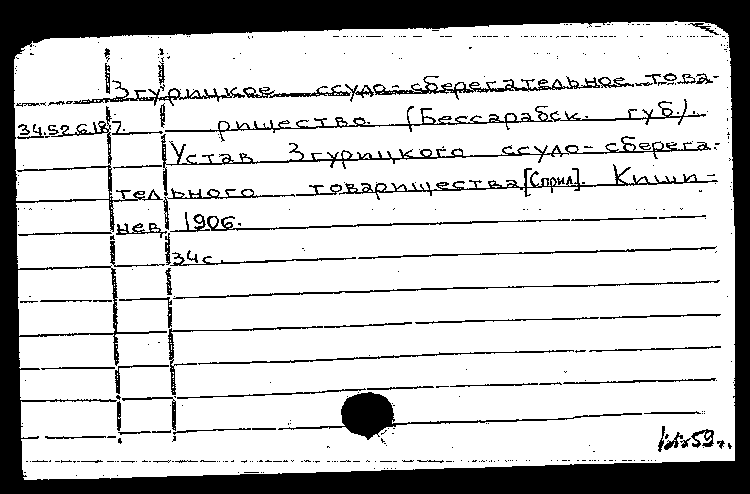 Згурицкое ссудо-сберегательное това-
34.52.6.187. рищество (Бессарабск. губ.).
Устав Згурицкого ссудо-сберега-
тельного товарищества [С прил]. Киши-
нев, 1906.
34 с.
59 г.